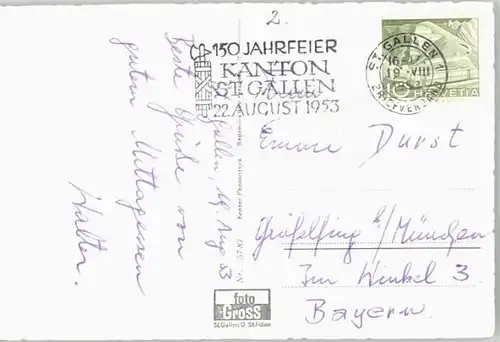 2.
150 JAHRFEIER
KANTON
ST GALLEN
22. AUGUST 1953
ST. GALLEN 1
19. VIII
BRIEFVERSAND
10 HELVETIA
St. Gallen, 19. Aug 53
Beste Grüße von
gutem Mittagessen
Walter.
Emma Durst
Gräfelfing b/ München
Im Winkel 3
Bayern.
Nr. 5787
foto
GROSS
St. Gallen O St. Fiden